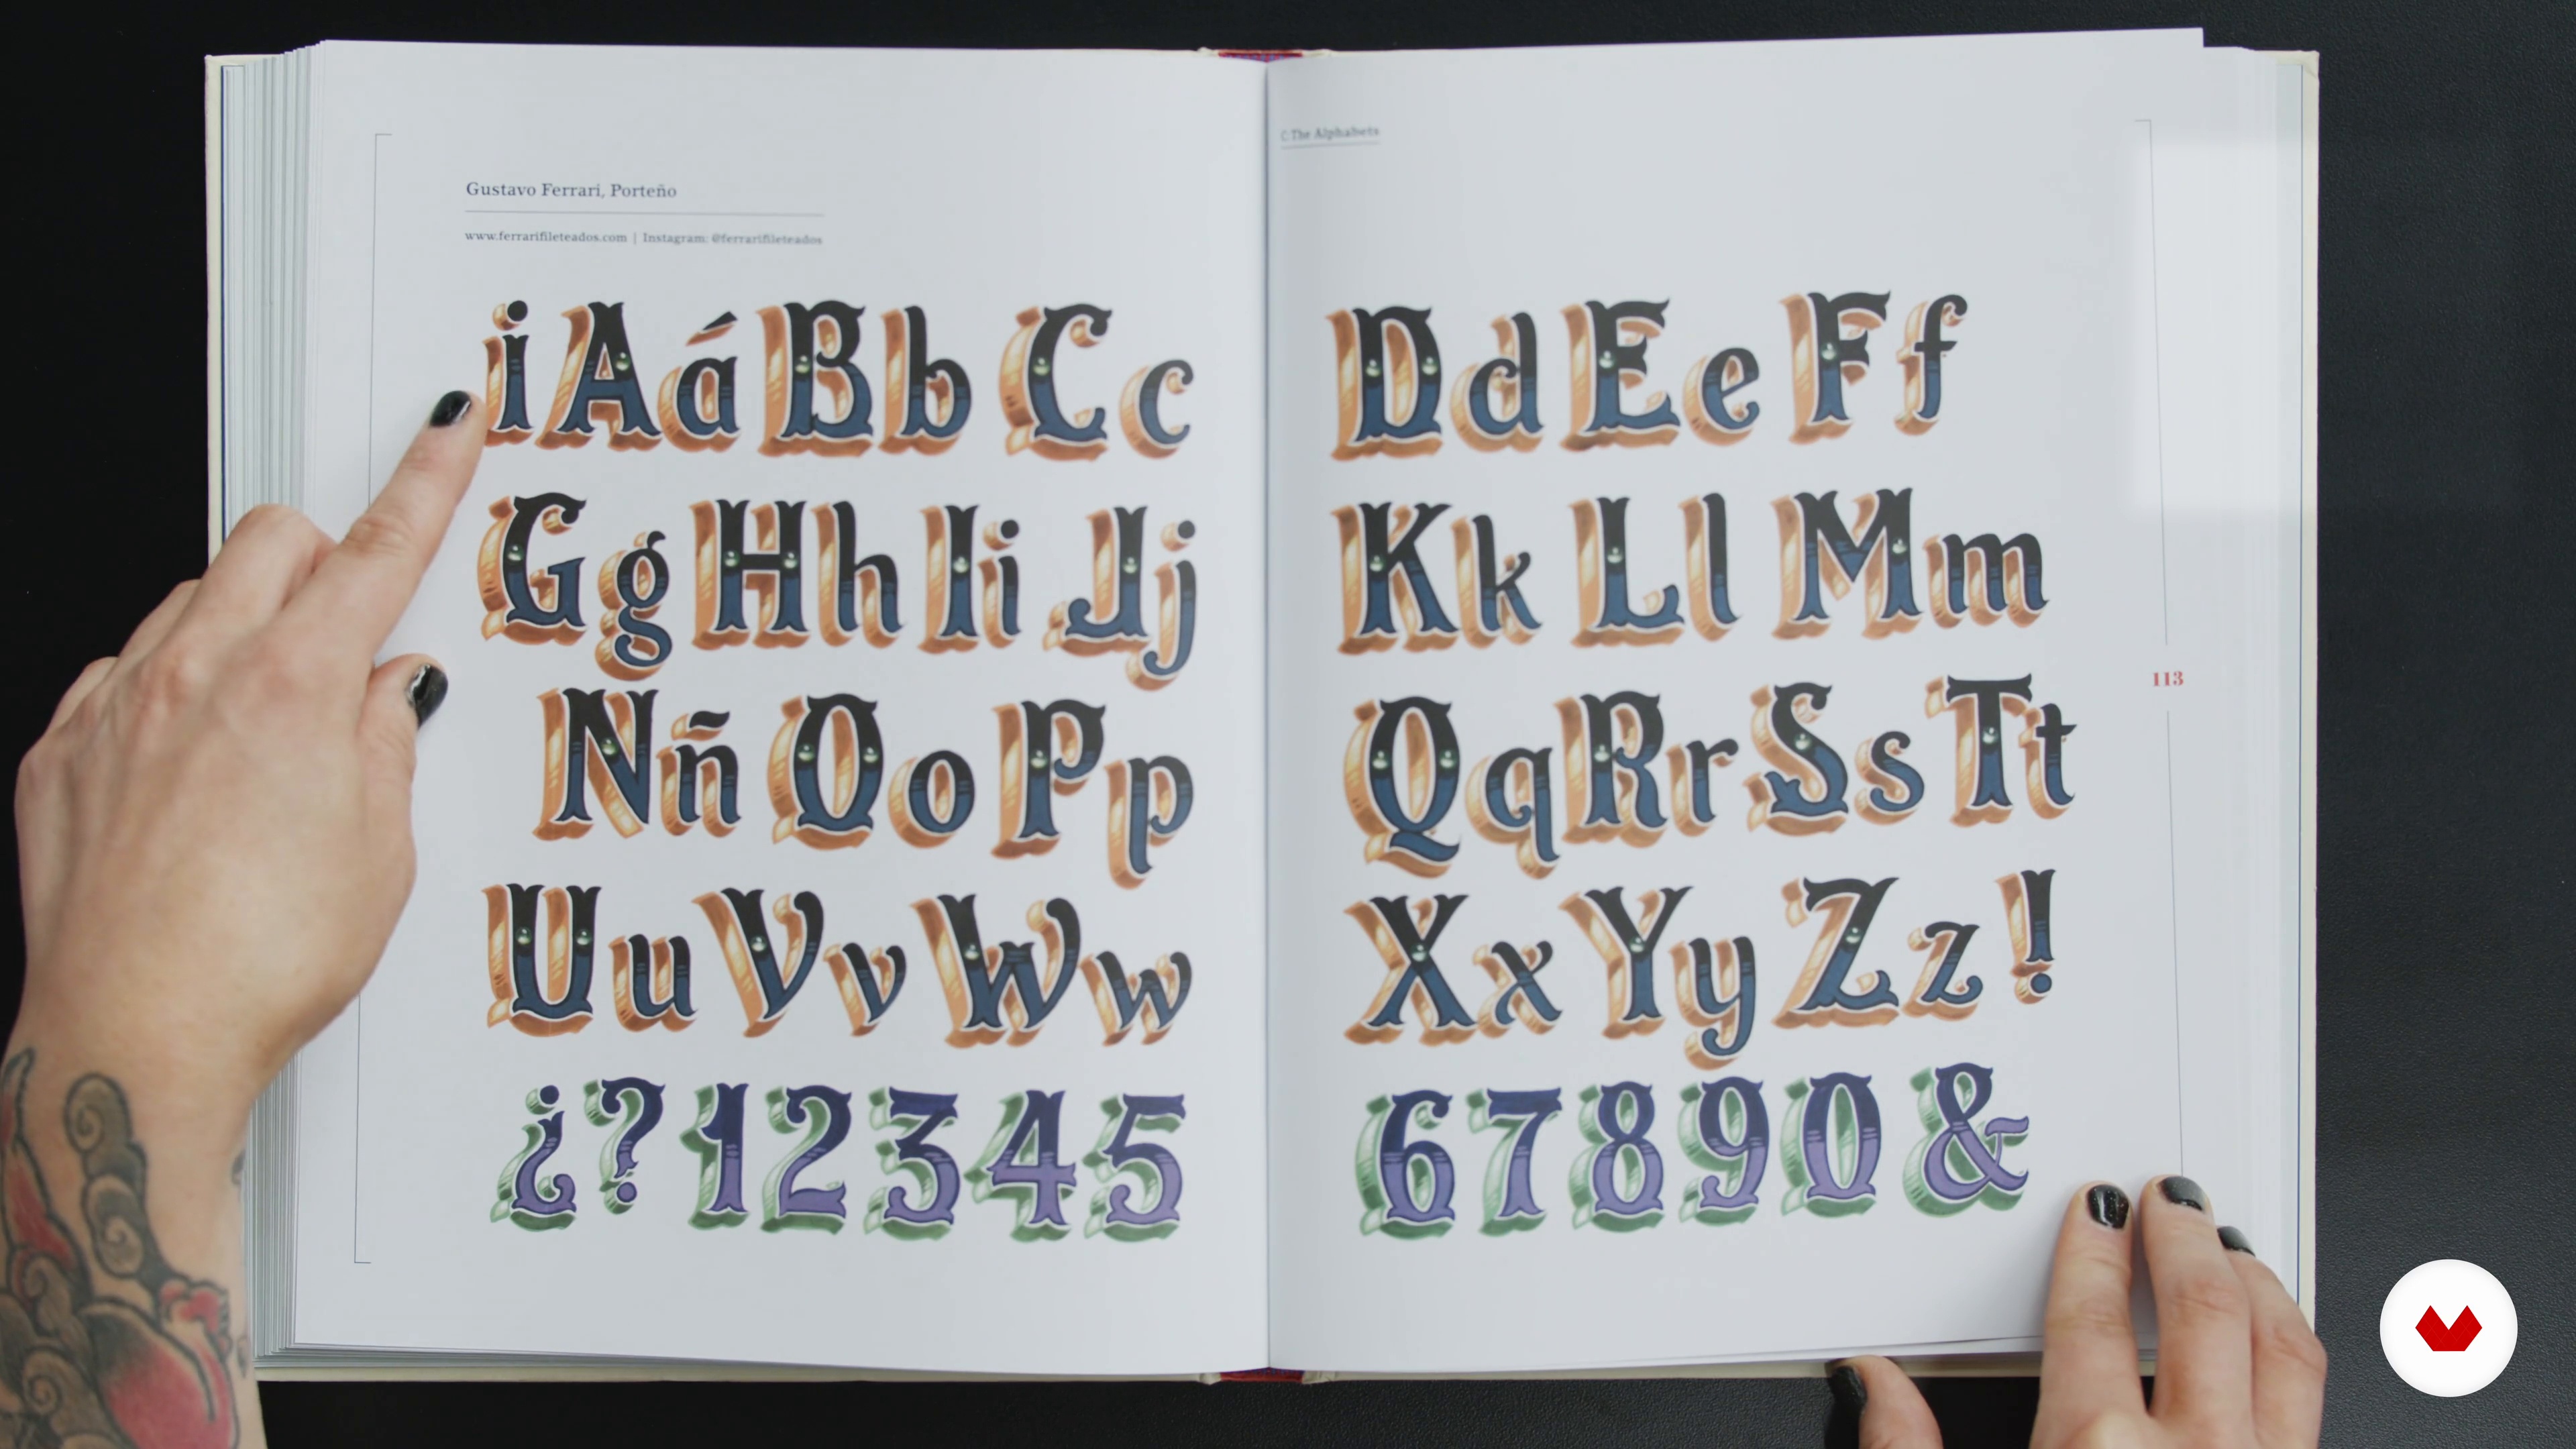 Gustavo Ferrari, Porteño
www.ferrarifileteados.com | Instagram: @ferrarifileteados
¡ A á B b C c
G g H h I i J j
N ñ O o P p
U u V v W w
¿ ? 1 2 3 4 5
C: The Alphabets
D d E e F f
K k L l M m
Q q R r S s T t
X x Y y Z z !
6 7 8 9 0 &
113